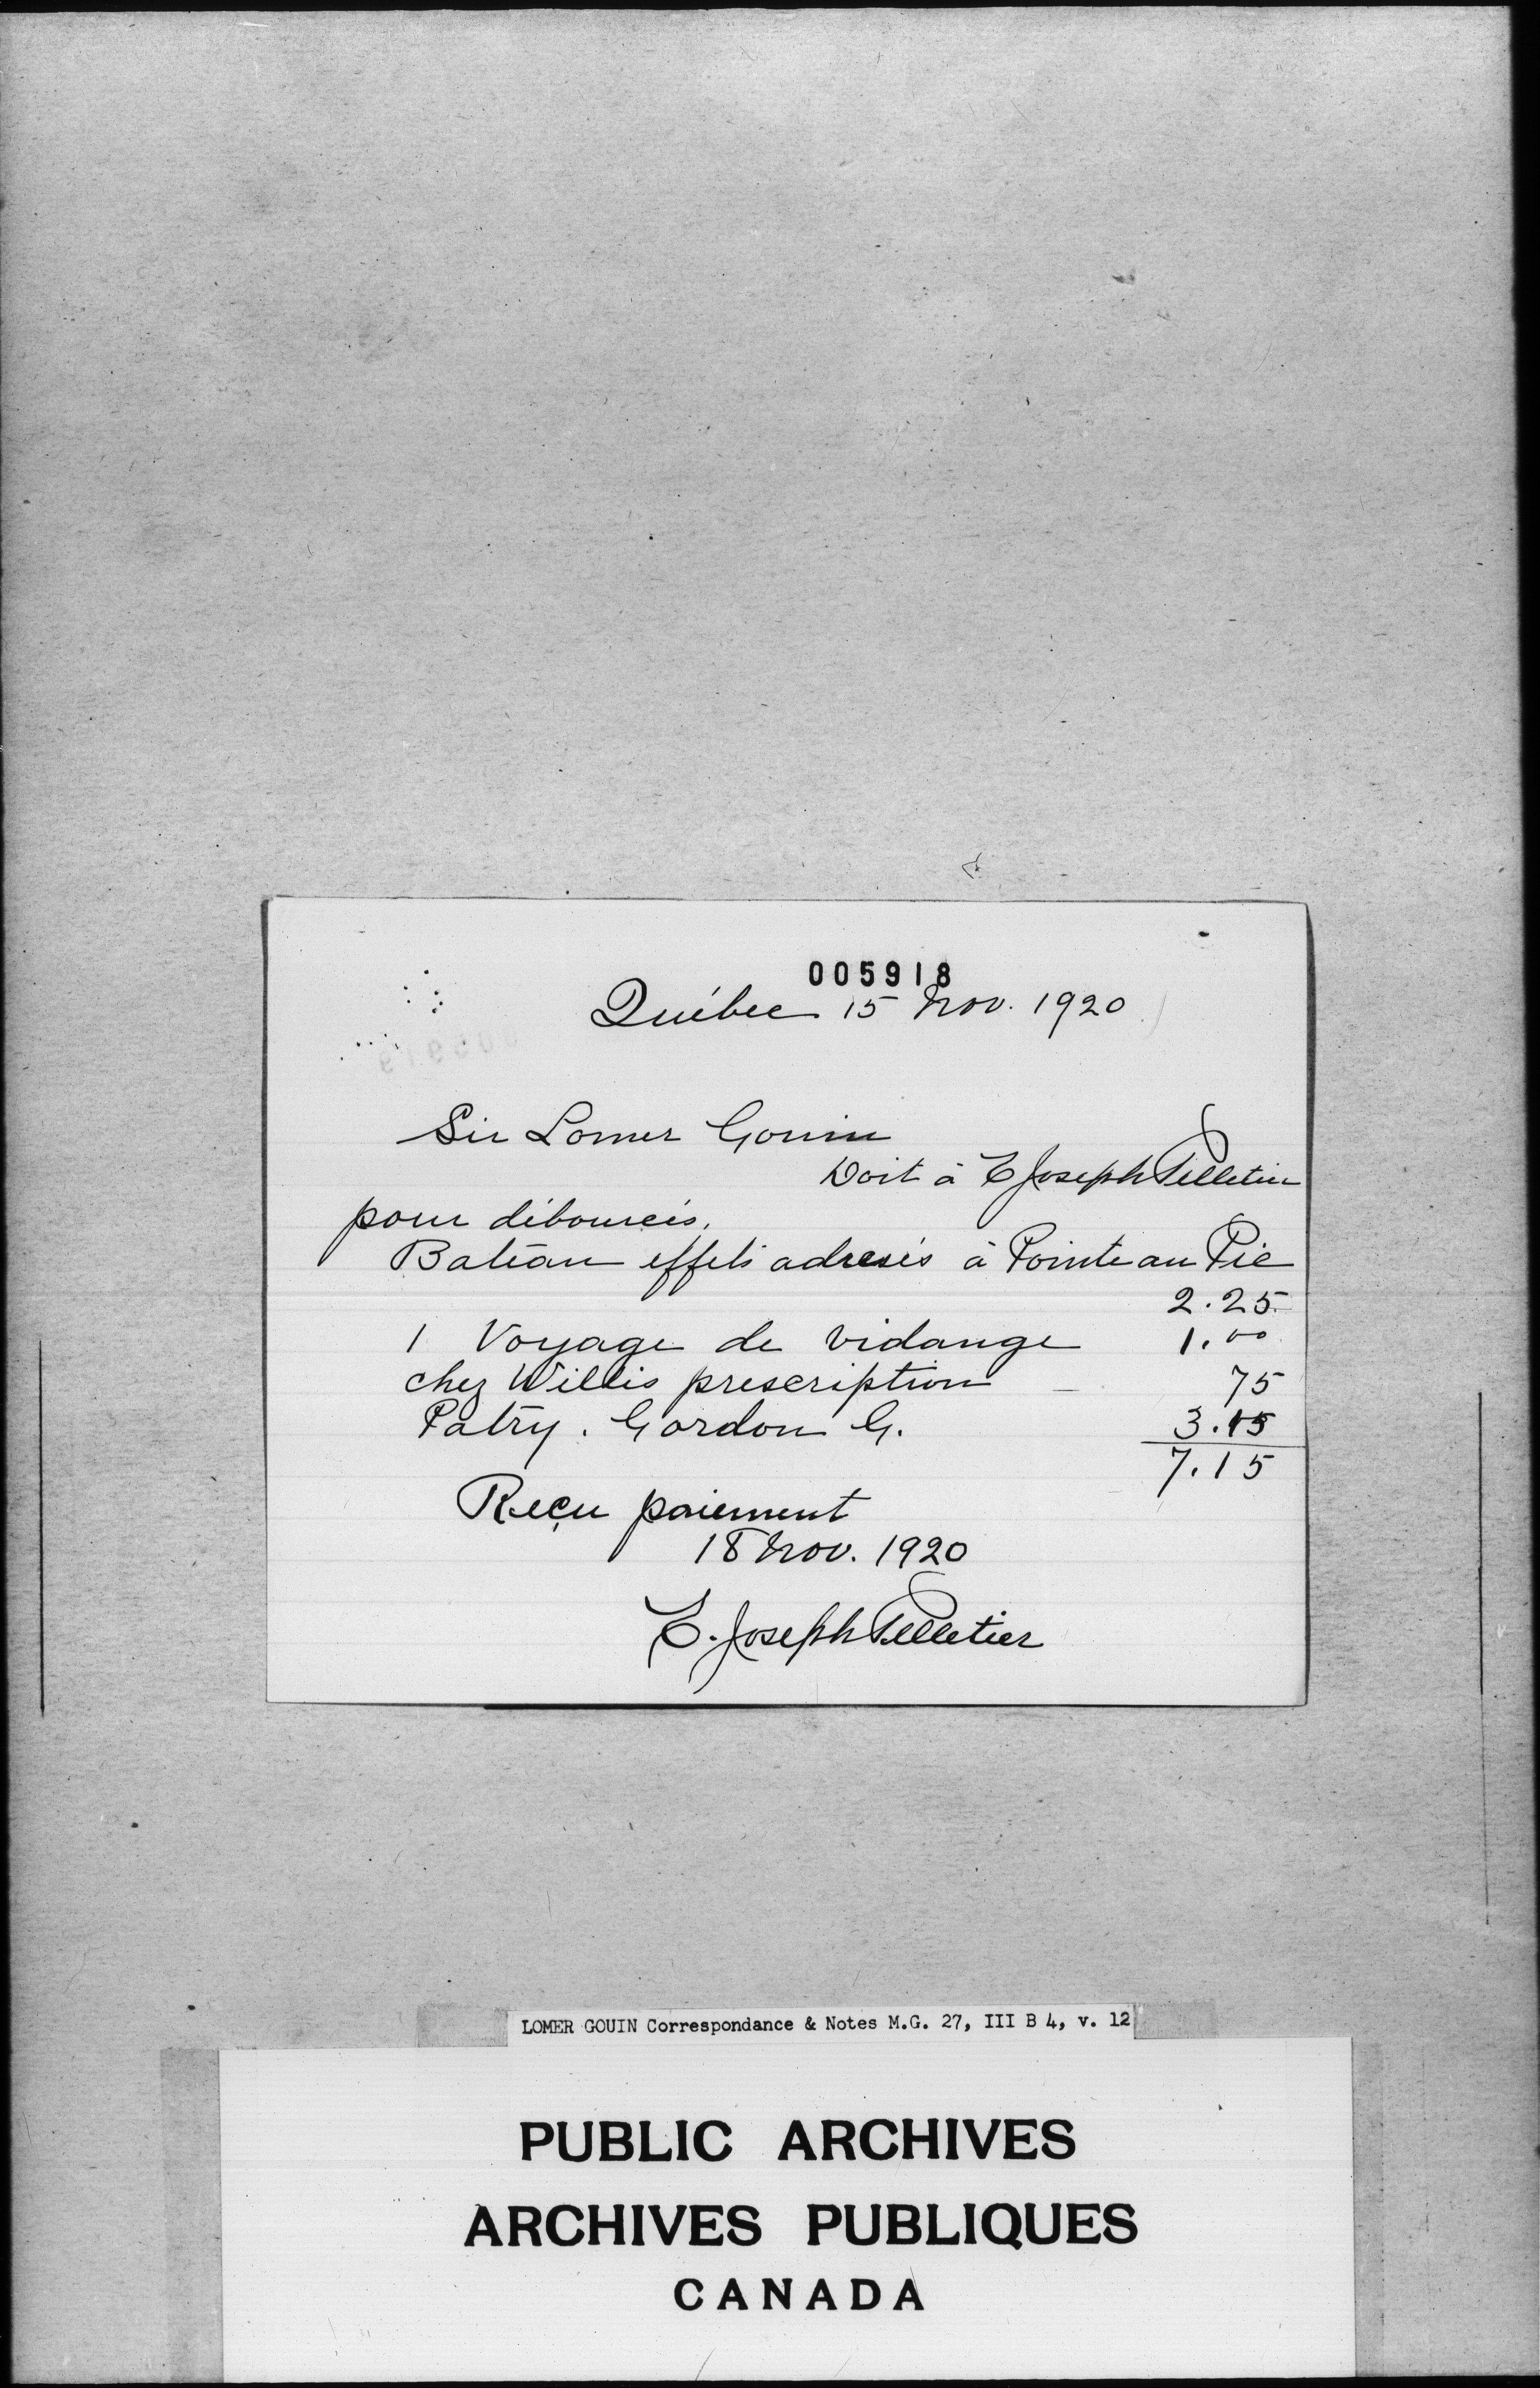 005918
Québec 15 Nov. 1920
Sir Lomer Gouin
Doit à E Joseph Pelletier
pour déboursés.
Bateau effets adresés à Pointe au Pic
2.25
1 Voyage de vidange 1.00
chez Willis prescription — 75
Patry. Gordon G. 3.15
7.15
Reçu paiement
18 Nov. 1920
E. Joseph Pelletier
LOMER GOUIN Correspondance & Notes M.G. 27, III B 4, v. 12
PUBLIC ARCHIVES
ARCHIVES PUBLIQUES
CANADA